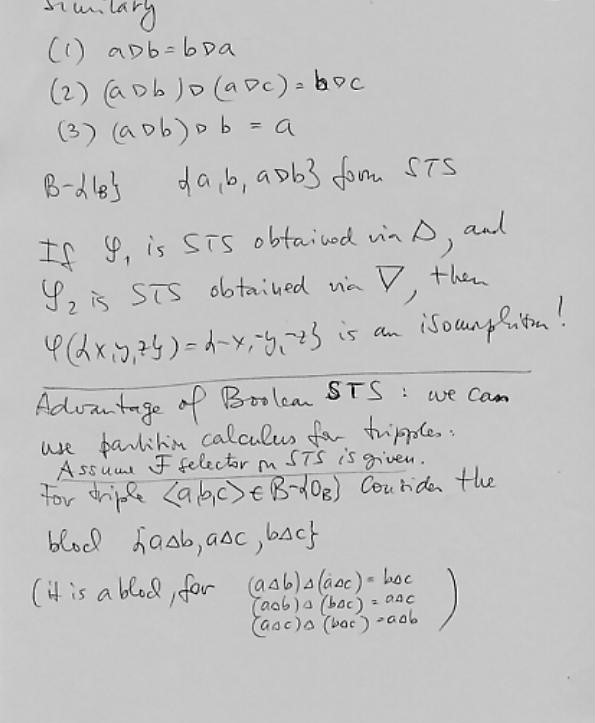 Similary
(1) a∇b=b∇a
(2) (a∇b)∇(a∇c)=b∇c
(3) (a∇b)∇b = a
B-{1_B} {a,b,a∇b} form STS
If φ₁ is STS obtained via Δ, and
φ₂ is STS obtained via ∇, then
φ({x,y,z})={-x,-y,-z} is an isomorphism!
Advantage of Boolean STS : we can
use partition calculus for tripples:
Assume F selector on STS is given.
For triple <a,b,c> ∈ B-{0_B} Consider the
block {aΔb,aΔc,bΔc}
(it is a block, for (aΔb)Δ(aΔc)=bΔc
(aΔb)Δ(bΔc)=aΔc
(aΔc)Δ(bΔc)=aΔb )